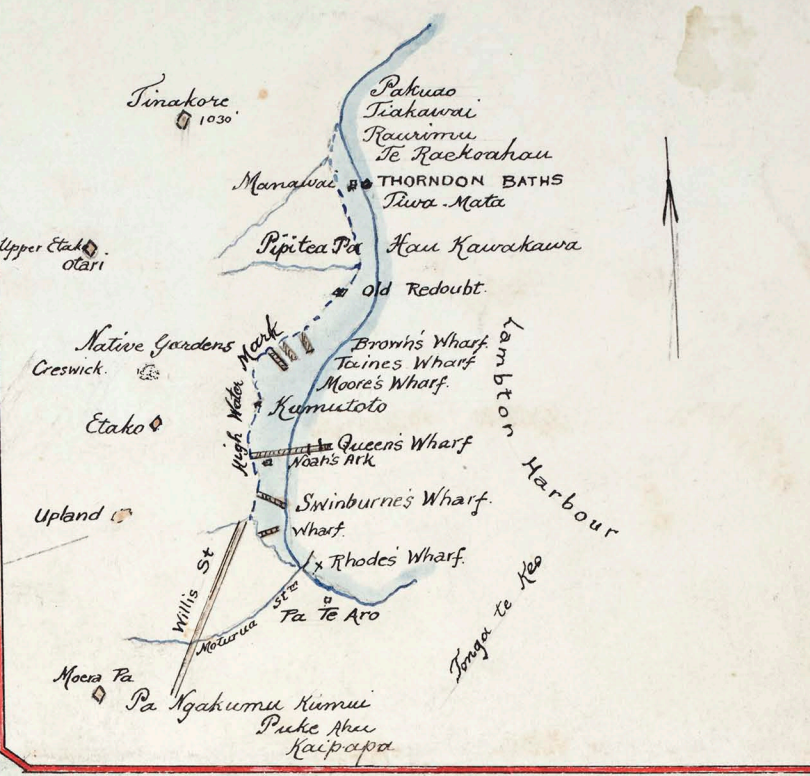 Pakuao
Tinakore
1030'
Tiakawai
Raurimu
Te Raekoahau
Manawai
THORNDON BATHS
Tiwa-Mata
Upper Etako
Otari
Pipitea Pa
Hau Kawakawa
Old Redoubt.
Native Gardens
Creswick.
High Water Mark
Brown's Wharf.
Taines Wharf
Moore's Wharf.
Lambton Harbour
Kumutoto
Etako
Queen's Wharf
Noah's Ark
Upland
Swinburne's Wharf.
Wharf.
Willis St
x Rhodes' Wharf.
Moturua Stm
Pa Te Aro
Tonga te Keo
Moera Pa
Pa Ngakumu Kumui
Puke Ahu
Kaipapa